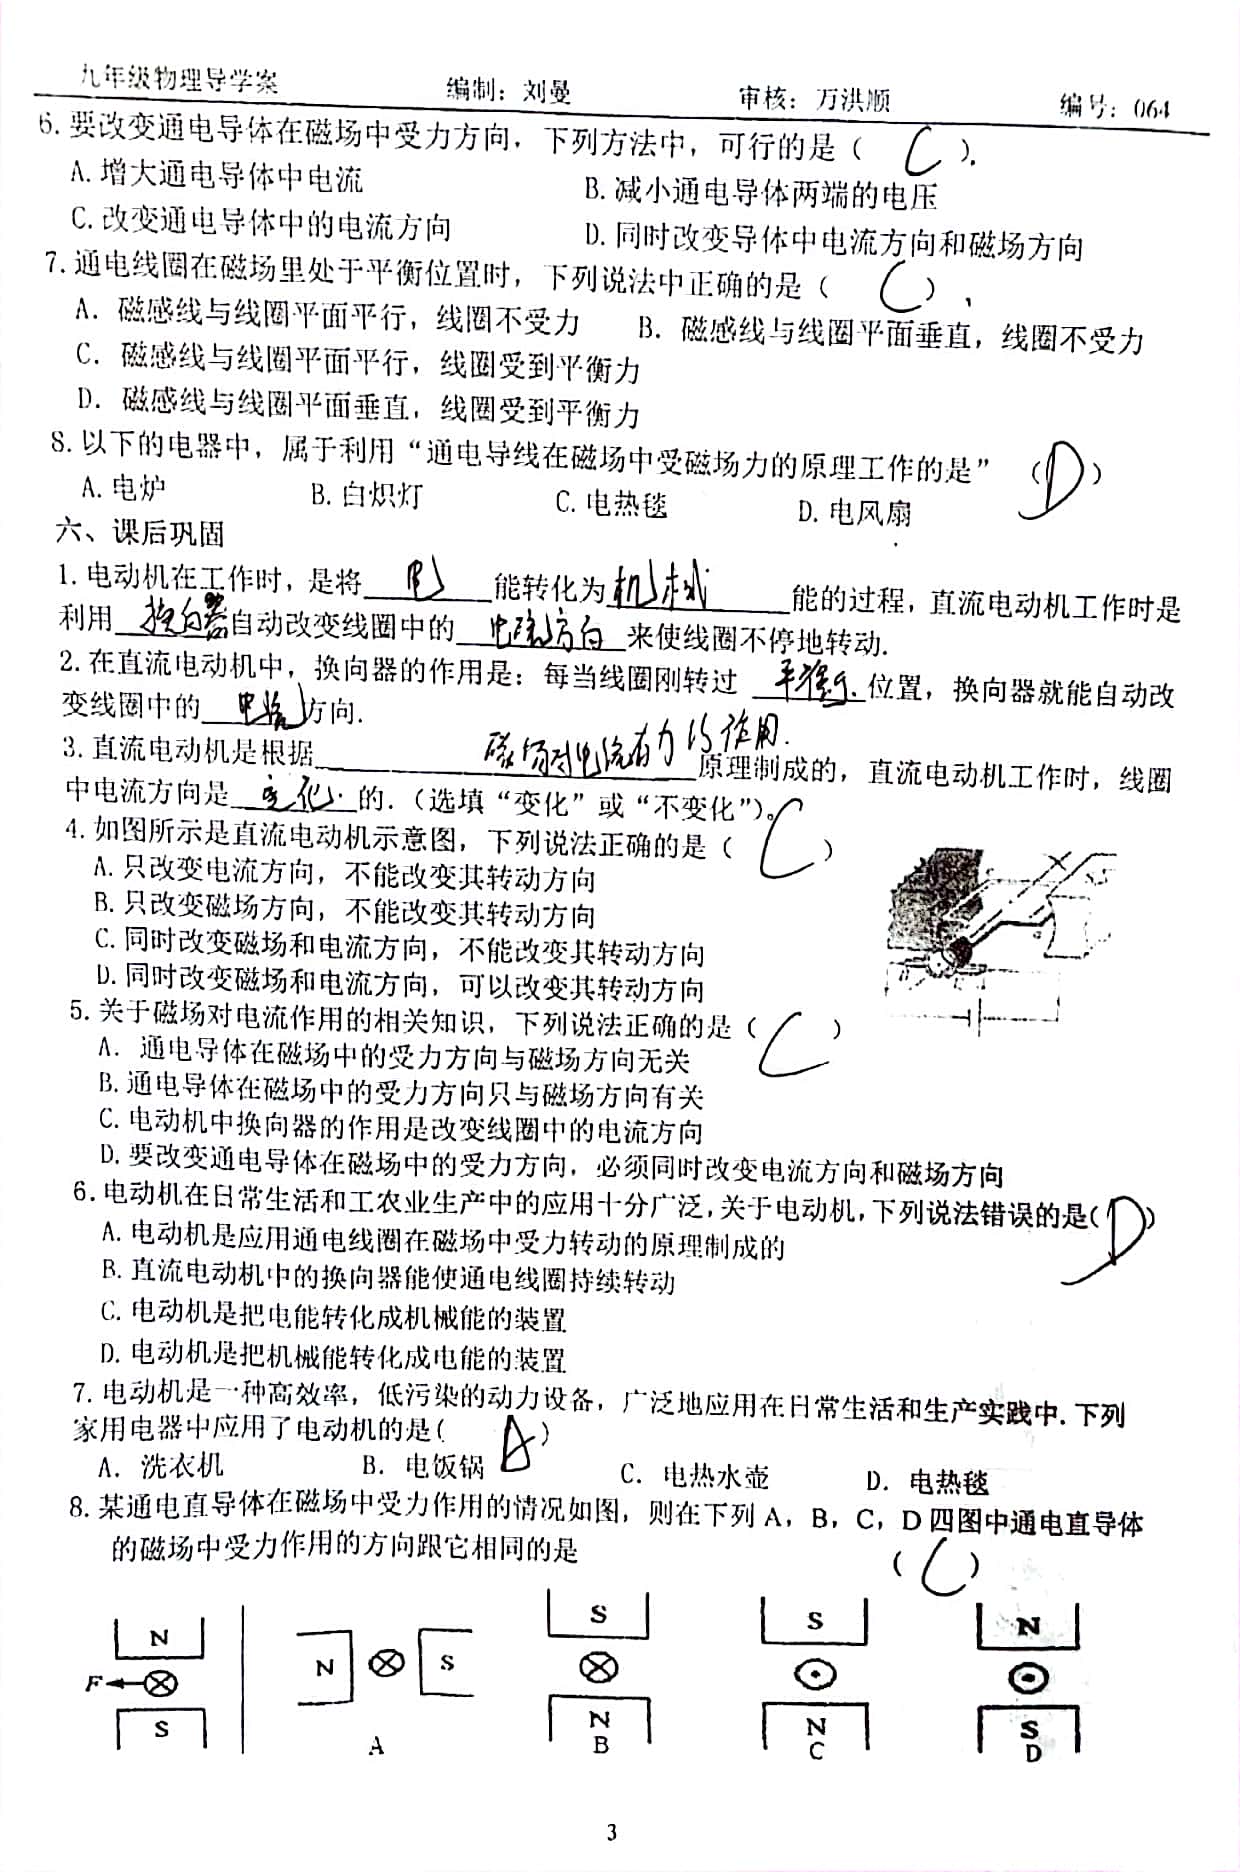 九年级物理导学案 编制：刘曼 审核：万洪顺 编号：064
6.要改变通电导体在磁场中受力方向，下列方法中，可行的是（ C ）.
A.增大通电导体中电流 B.减小通电导体两端的电压
C.改变通电导体中的电流方向 D.同时改变导体中电流方向和磁场方向
7.通电线圈在磁场里处于平衡位置时，下列说法中正确的是（ C ）.
A．磁感线与线圈平面平行，线圈不受力 B．磁感线与线圈平面垂直，线圈不受力
C．磁感线与线圈平面平行，线圈受到平衡力
D．磁感线与线圈平面垂直，线圈受到平衡力
8.以下的电器中，属于利用“通电导线在磁场中受磁场力的原理工作的是” （D）
A.电炉 B.白炽灯 C.电热毯 D.电风扇
六、课后巩固
1.电动机在工作时，是将 电 能转化为 机械 能的过程，直流电动机工作时是
利用 换向器 自动改变线圈中的 电流方向 来使线圈不停地转动.
2.在直流电动机中，换向器的作用是：每当线圈刚转过 平衡 位置，换向器就能自动改
变线圈中的 电流 方向.
3.直流电动机是根据 磁场对电流有力的作用. 原理制成的，直流电动机工作时，线圈
中电流方向是 变化. 的.（选填“变化”或“不变化”）。
4.如图所示是直流电动机示意图，下列说法正确的是（ C ）
A.只改变电流方向，不能改变其转动方向
B.只改变磁场方向，不能改变其转动方向
C.同时改变磁场和电流方向，不能改变其转动方向
D.同时改变磁场和电流方向，可以改变其转动方向
5.关于磁场对电流作用的相关知识，下列说法正确的是（ C ）
A．通电导体在磁场中的受力方向与磁场方向无关
B.通电导体在磁场中的受力方向只与磁场方向有关
C.电动机中换向器的作用是改变线圈中的电流方向
D.要改变通电导体在磁场中的受力方向，必须同时改变电流方向和磁场方向
6.电动机在日常生活和工农业生产中的应用十分广泛,关于电动机,下列说法错误的是(D)
A.电动机是应用通电线圈在磁场中受力转动的原理制成的
B.直流电动机中的换向器能使通电线圈持续转动
C.电动机是把电能转化成机械能的装置
D.电动机是把机械能转化成电能的装置
7.电动机是一种高效率，低污染的动力设备，广泛地应用在日常生活和生产实践中.下列
家用电器中应用了电动机的是( A )
A．洗衣机 B．电饭锅 C．电热水壶 D．电热毯
8.某通电直导体在磁场中受力作用的情况如图，则在下列A，B，C，D四图中通电直导体
的磁场中受力作用的方向跟它相同的是 （ C ）
N N S S S S N
F
S N N S
A B C D
3